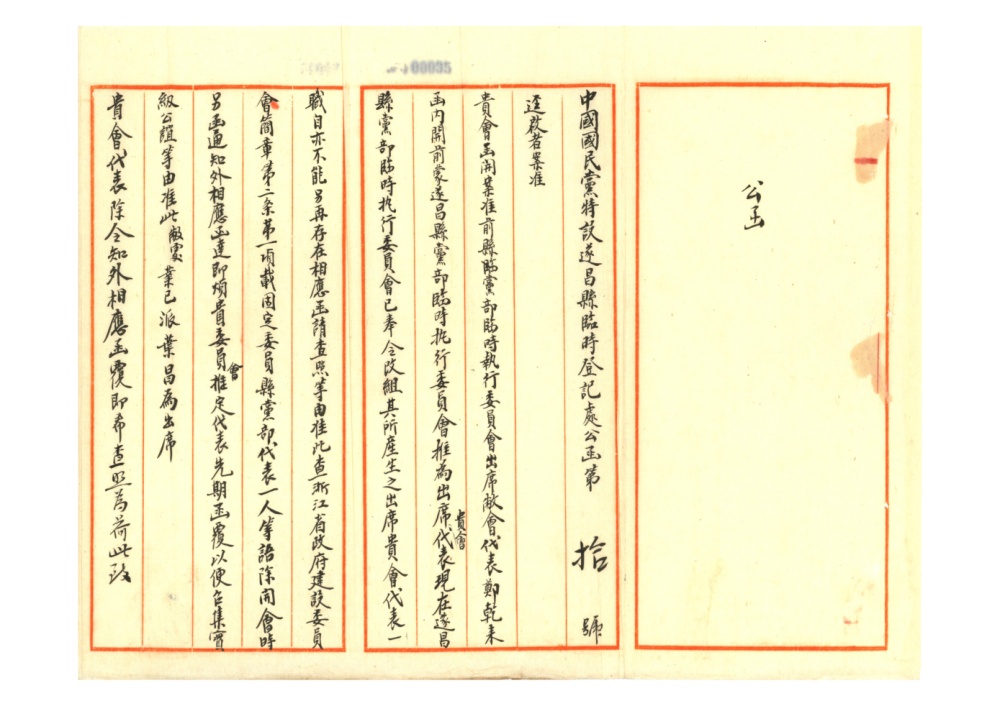 00035
公函
中國國民黨特設遂昌縣臨時登記處公函第拾號
逕啟者案准
貴會函開案准前縣臨黨部臨時執行委員會出席敝會代表鄭乾來
函內開前蒙遂昌縣黨部臨時執行委員會推為出席貴會代表現在遂昌
縣黨部臨時执行委員會已奉令改組其所產生之出席貴會代表一
職自亦不能另再存在相應函請查照等由准此查浙江省政府建設委員
會簡章第二条第一項載固定委員縣黨部代表一人等語除開會時
另函通知外相應函達即煩貴委員會推定代表先期函覆以便召集實
級公誼等由准此敝處業已派葉昌為出席
貴會代表除令知外相應函覆即希查照為荷此致